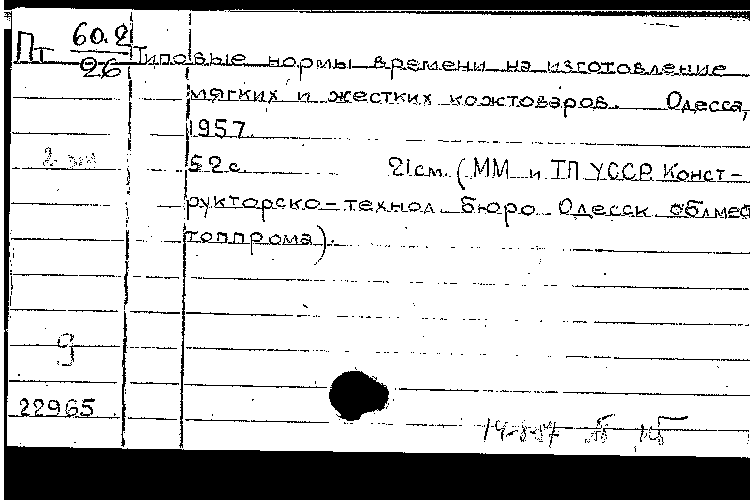 Пт 60.2
26
Типовые нормы времени на изготовление
мягких и жестких кожтоваров. Одесса,
1957.
2 экз
52 с. 21см. (ММ и ТП УССР. Конст-
рукторско-технол. бюро Одесск. облмес
топпрома).
9
22965
14-8-57